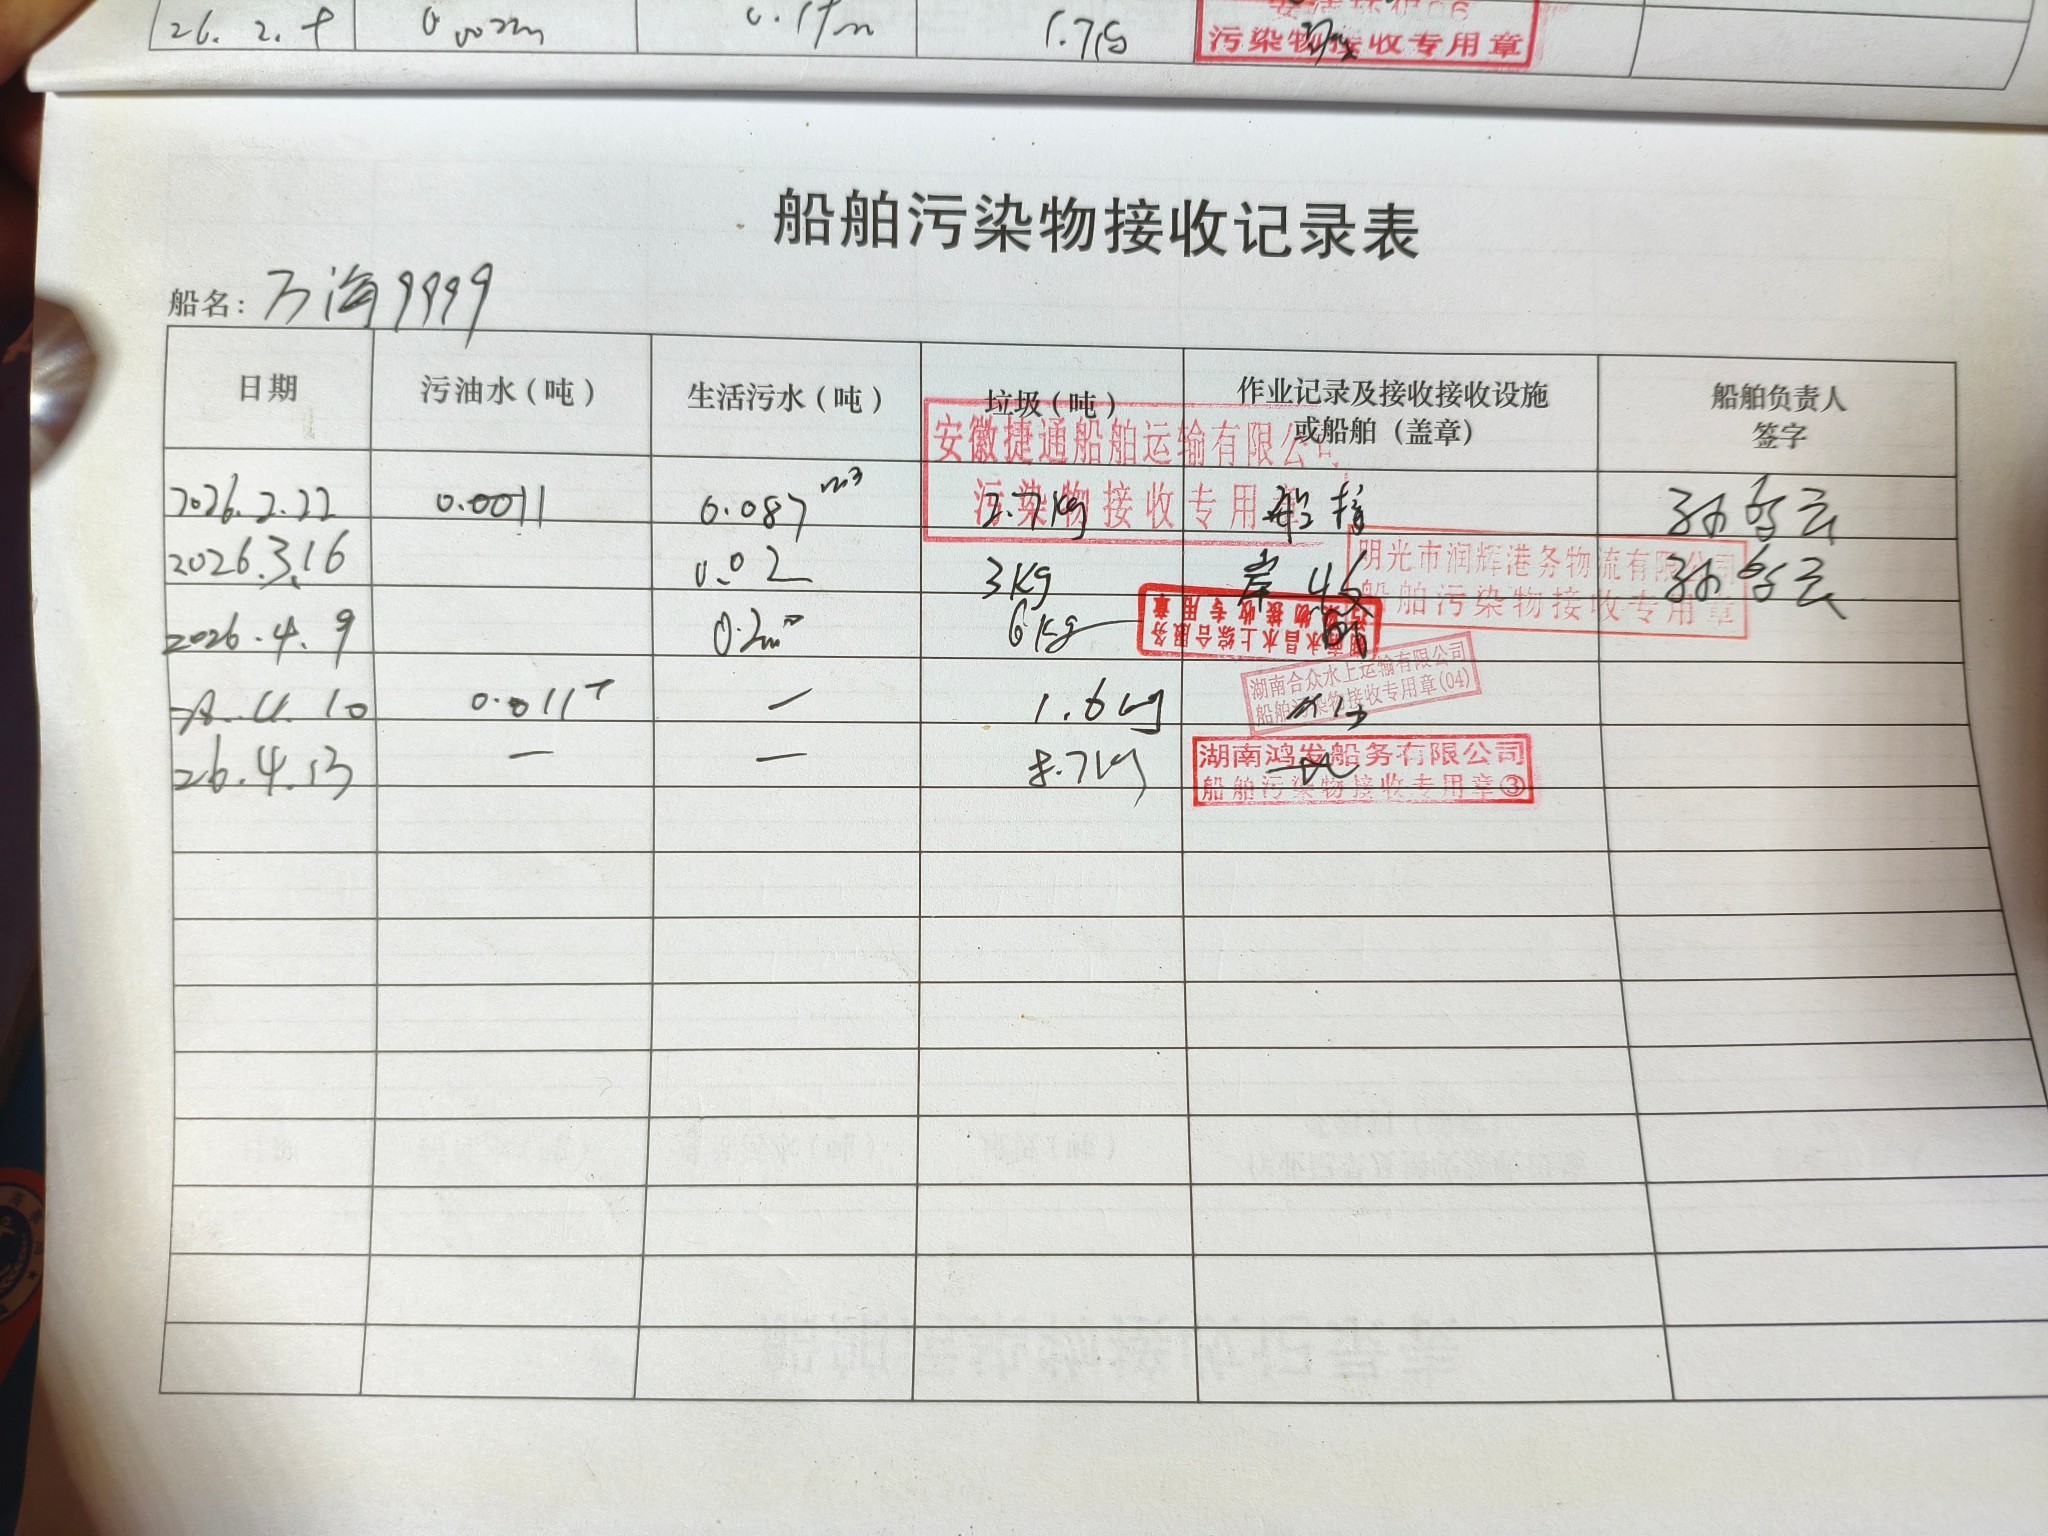 26. 2.
污染物接收专用章
船舶污染物接收记录表
船名: 万海9999
日期 污油水(吨) 生活污水(吨) 垃圾(吨) 作业记录及接收接收设施或船舶(盖章) 船舶负责人签字
安徽捷通船舶运输有限公司
污染物接收专用章
2026.2.22 0.0011 0.087m³ 2.7kg 船接
明光市润辉港务物流有限公司
船舶污染物接收专用章
2026.3.16 0.02 3kg 岸收
2026.4.9 0.2m³ 6kg
湖南合众水上运输有限公司
船舶污染物接收专用章(04)
26.4.10 0.011T — 1.6kg
湖南鸿发船务有限公司
船舶污染物接收专用章③
26.4.13 — — 8.7kg